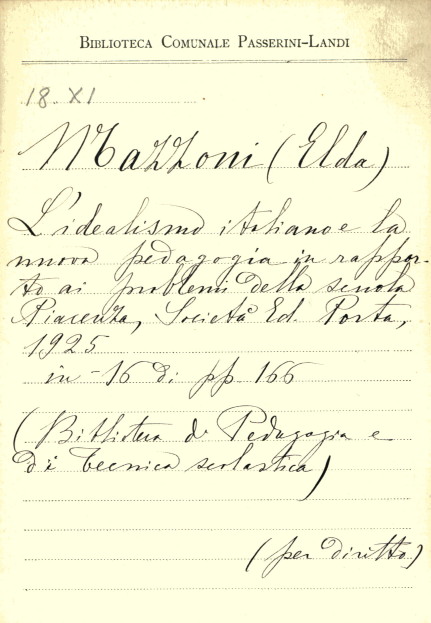 BIBLIOTECA COMUNALE PASSERINI-LANDI
18. XI
Mazzoni (Elda)
L'idealismo italiano e la
nuova pedagogia in rappor-
to ai problemi della scuola
Piacenza, Società Ed. Porta,
1925
in-16 di pp. 166
(Biblioteca di Pedagogia e
di tecnica scolastica)
(per diritto)